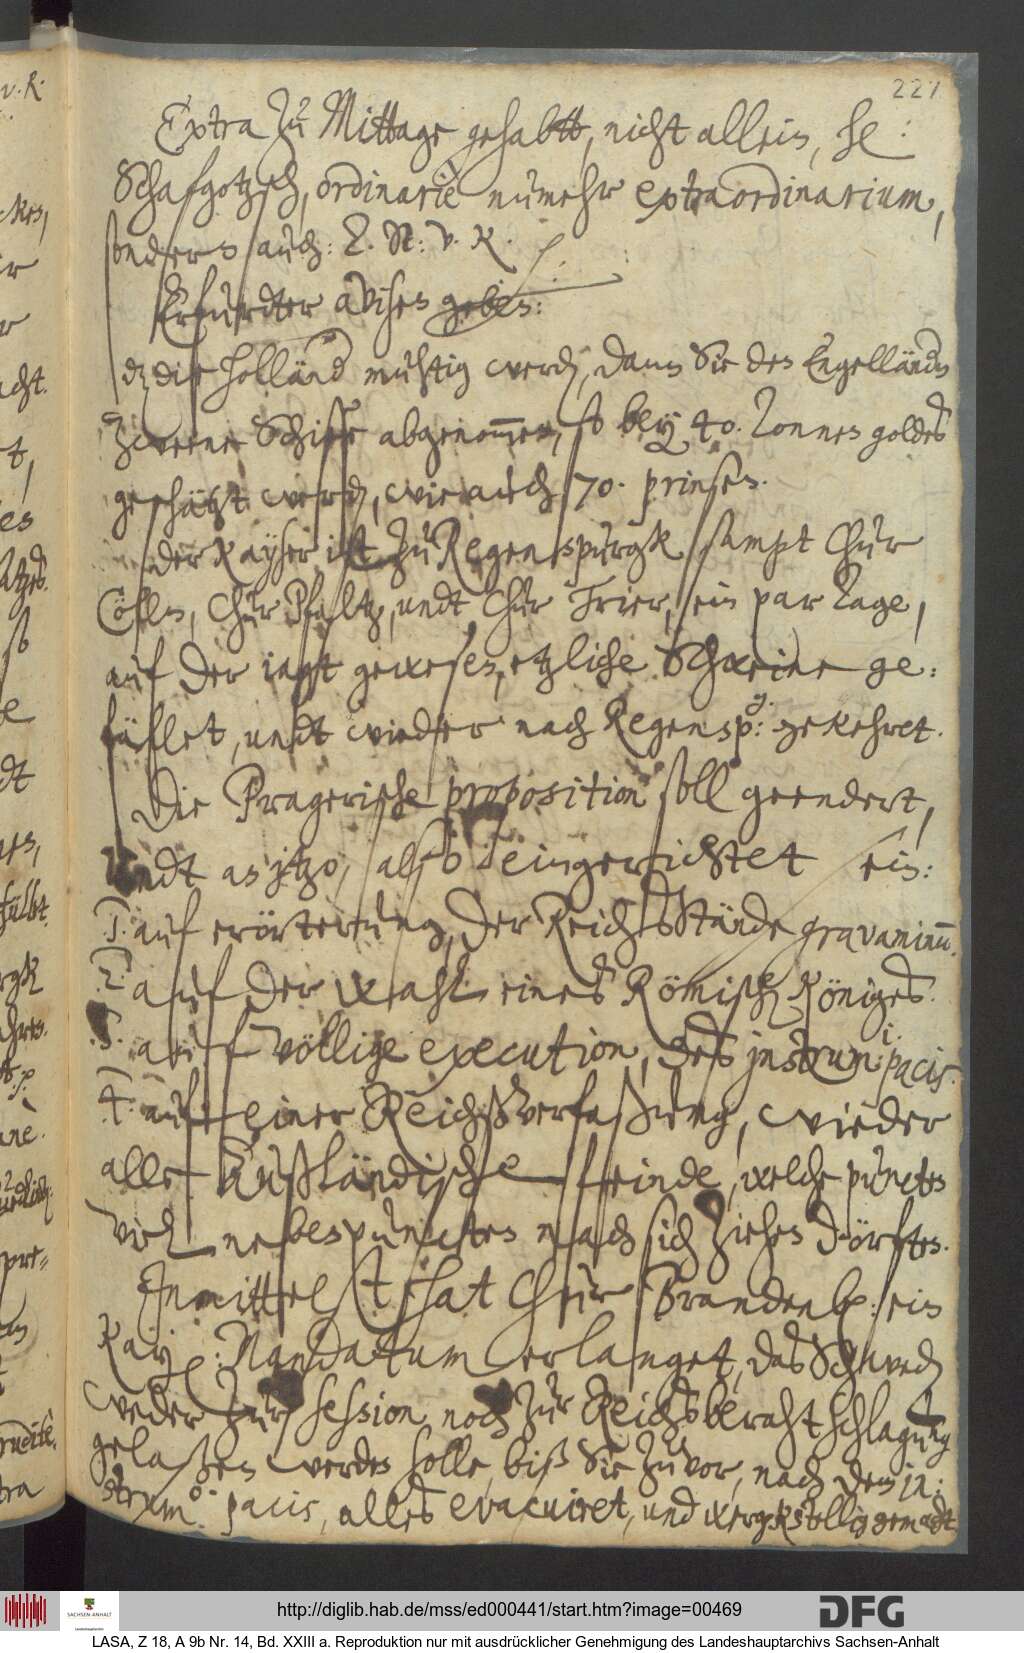 227.
Extra zu Mittage gehabtt, nicht allein, He:
Schafgotzsch, ordinariè numehr extraordinarium,
sondern auch: L. St: v. K.
Erfurdter avisen geben:
dz die Holländ mustig werd, dann Sie den Engelländn
Zweene Schiffe abgenommen, so bey 40. Tonnen goldes
geschätzt werd, wie auch 70. prinsen.
der Kayser ist zu Regenspurgk sampt Chur
Cölln, Chur Pfaltz, undt Chur Trier, ein par Tage,
auf der jagt gewesen, etzliche Schweine ge:
fället, undt wieder nach Regensp:g. gekehret.
Die Pragerische proposition soll geendert,
undt an itzo, also eingerichtet sein:
1. auf erörterung, der ReichsStände gravaminũ.
2. auf der wahl eines Römisch Königes.
3. auf völlige execution, des instrum:i. pacis.
4. auf einer Reichßverfaßung, wieder
alle Außländische feinde, welche puncten
viel nebenpuncten nach sich ziehen dörften.
Inmittelst hat Chur Brandenb: ein
Kay: Mandatum erlanget, das Schwed
weder zur session, noch zur Reichsberahtschlagung
gelaßen werden solle, biß Sie zuvor, nach dem in:
strum:o. pacis, alles evacuiret, und wergkstellig gemacht
v. K.
http://diglib.hab.de/mss/ed000441/start.htm?image=00469
SACHSEN-ANHALT
DFG
LASA, Z 18, A 9b Nr. 14, Bd. XXIII a. Reproduktion nur mit ausdrücklicher Genehmigung des Landeshauptarchivs Sachsen-Anhalt